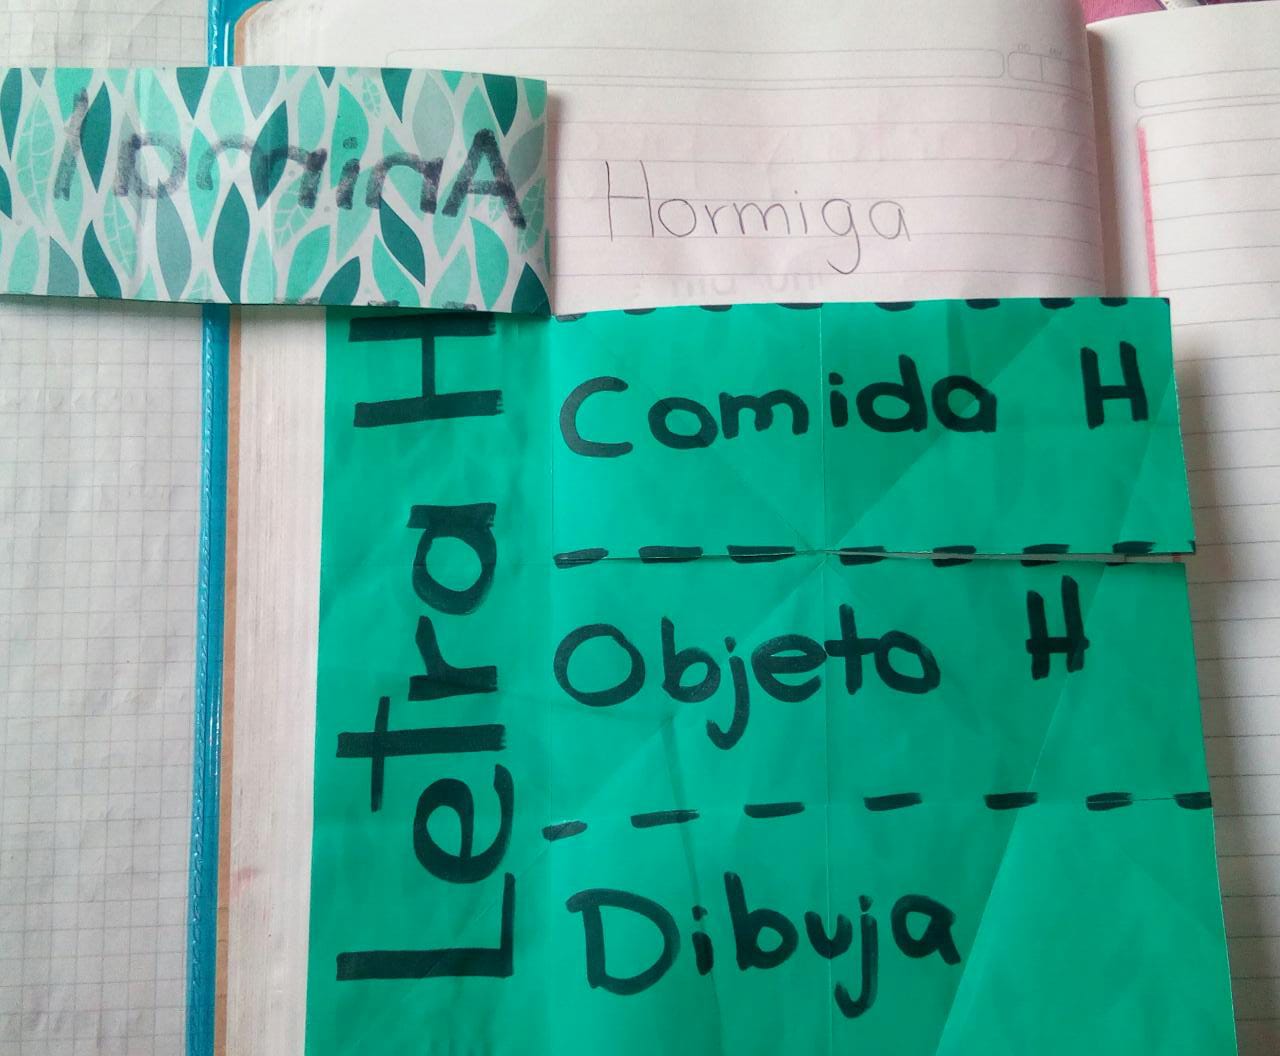 Animal
Hormiga
Letra H
Comida H
Objeto H
Dibuja